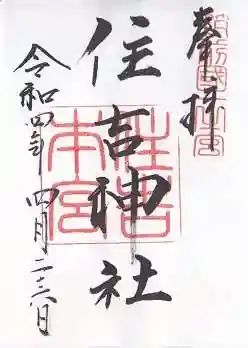 奉拝
住吉神社
住吉
本宮
令和四年 四月二十六日